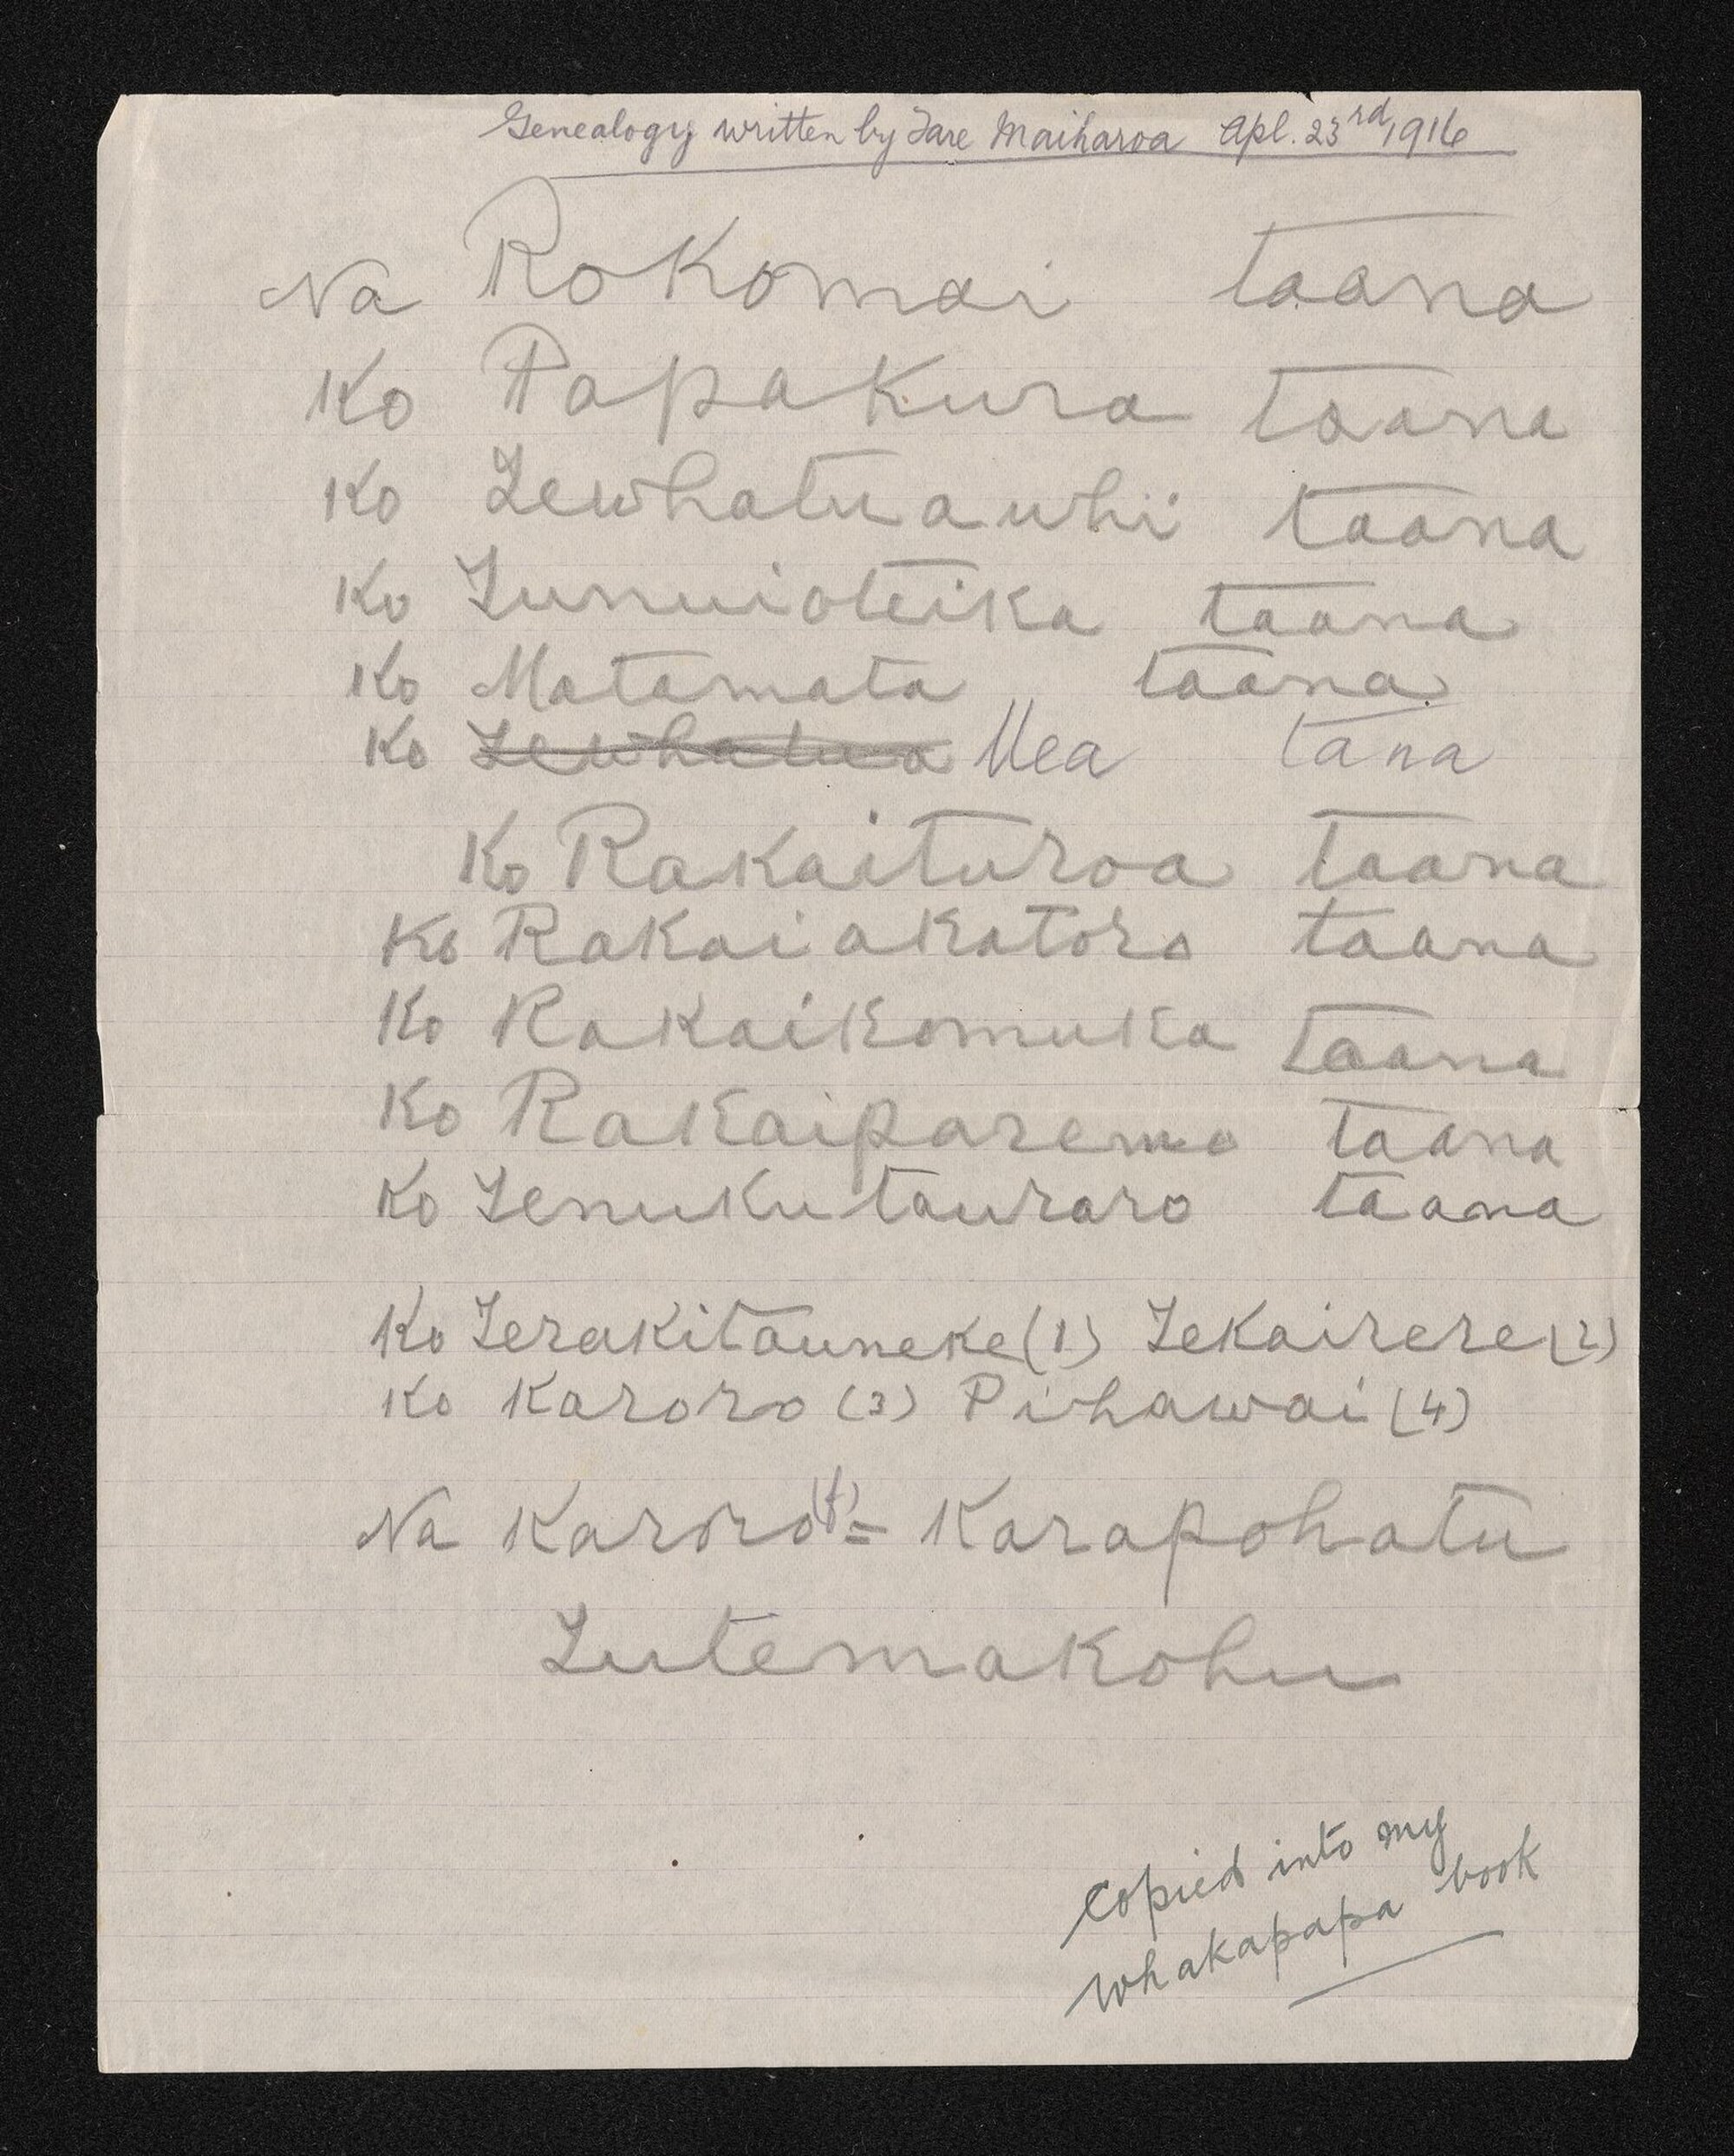 Genealogy written by Tare Maiharoa Apl. 23rd, 1916
Na Rokomai taana
Ko Papakura taana
Ko Tewhatuawhii taana
Ko Tunuioteika taana
Ko Matamata taana
Ko Tewhatua Uea tana
Ko Rakaituroa taana
Ko Rakaiakatoro taana
Ko Rakaikomuka taana
Ko Rakaiparemo taana
Ko Tenuku tauraro taana
Ko Terakitauneke (1) Tekairere (2)
Ko Karoro (3) Pihawai (4)
Na Karoro (f) = Karapohatu
Tutemakohu
Copied into my
whakapapa book